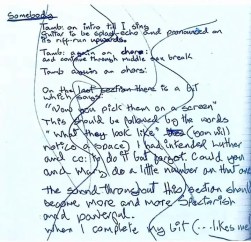 Somebody
Tamb: on intro till I sing
Guitar to be splash-echo and pronounced on
its riff-run upwards.
Tamb: again on chors:
and continue through middle sax break
Tamb again on chors:
On the last section there is a bit
which says:
"Now you pick them on a screen"
This should be followed by the words
"what they look like" (you will
notice a space) I had intended Luther
and co: to do it but forgot. Could you
and Mary do a little number on that one
the sound throughout this section should
become more and more Spectorish
and powerful.
when I complete my bit (...likes me